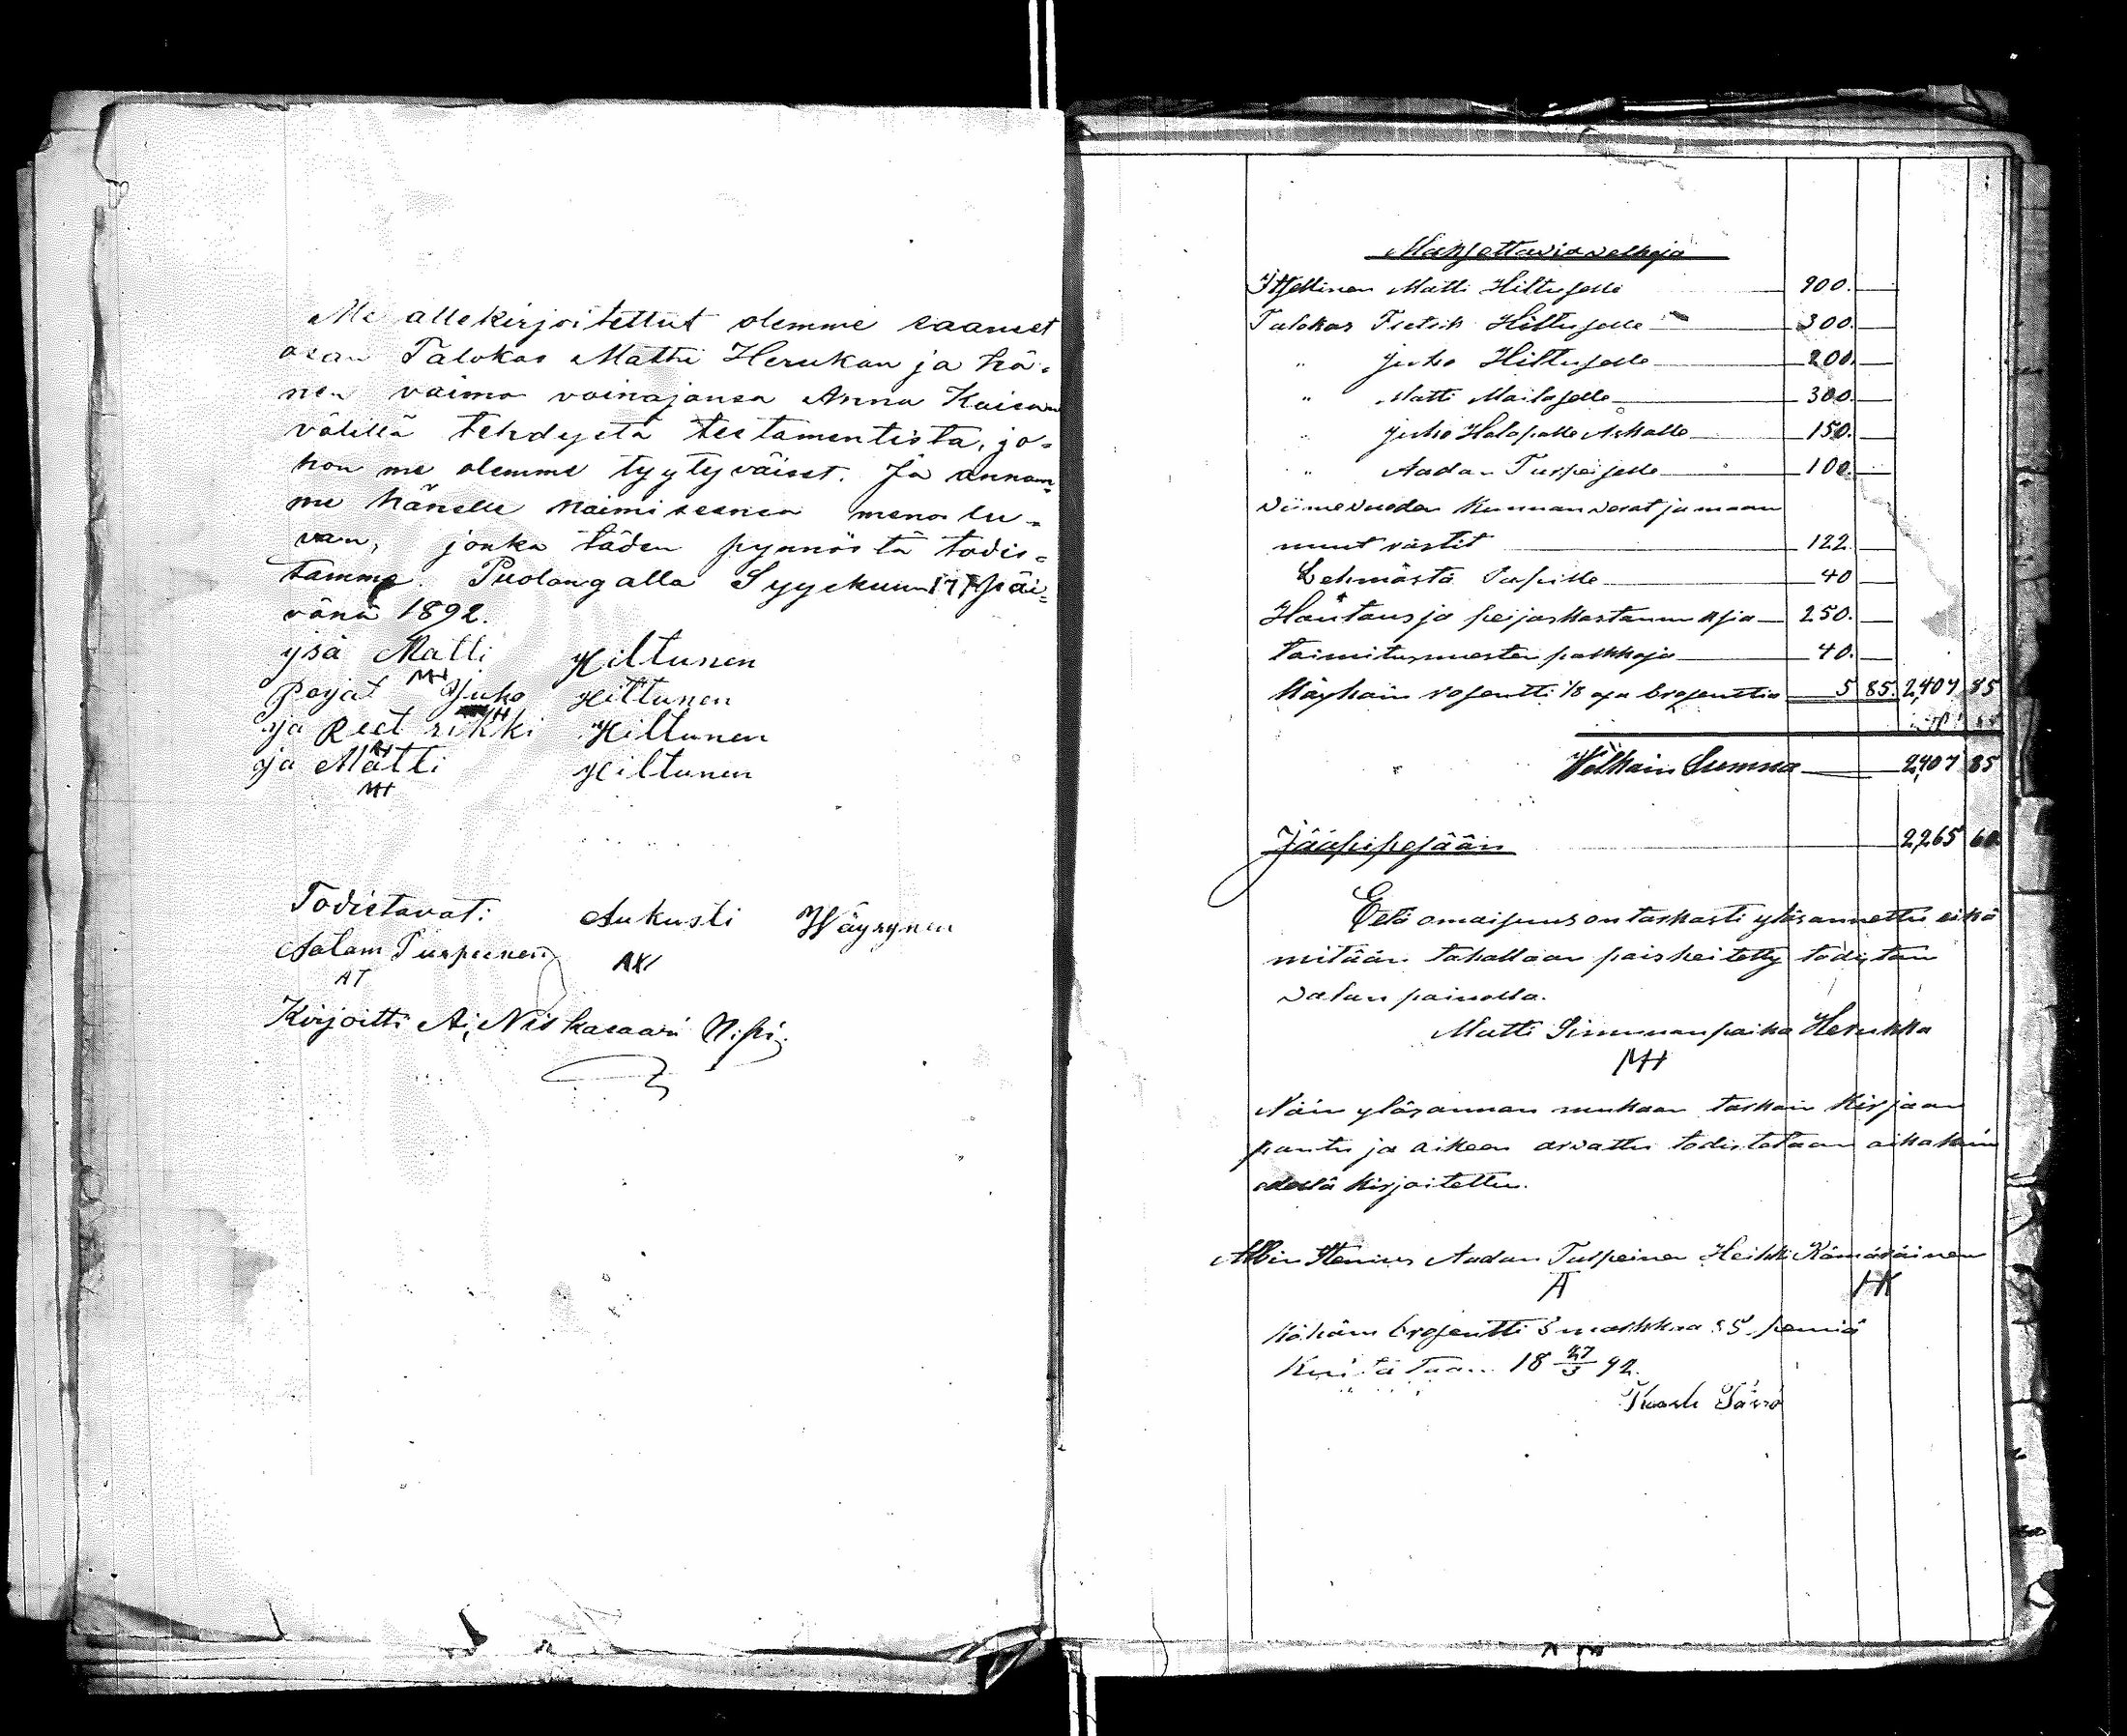 Me allekirjoitettut olemme saaneet
osan Talokas Matti Herukan ja hä-
nen vaimo vainajansa Anna Kaisan
välillä tehdystä testamentista, jo-
hon me olemme tyytyväiset. Ja annam-
me hänelle naimiseen meno lu-
van, jonka täden pynnöstä todis-
tamme. Puolangalla Syyskuun 17 päi-
vänä 1892.
ysä Matti Hiltunen
MH
Poyat Juho Hiltunen
ya Peet rikki Hiltunen
ja Matti Hiltunen
MH
Todistavat: Aukusti Wäyrynen
Aatam Turpeinen
AT
Kirjoitti A. Niskasaari
Maksettavia velkoja
Itsellinen Matti Hiltuselle 900.
Talokas Hiltuselle 300.
„ Juho Hiltuselle 200.
„ Matti Mailaselle 300.
„ Juho 150.
„ Aadam Turpeiselle 100.
viimevuoden Kunnan verot ja maan
muut rästit 122.
Lehmästä 40
Hautaus ja peijaskustannuksia 250.
Toimitusmesten palkkoja 40.
1/8 osa brosenttia 5 85. 2,407 85
Welkain Summa 2,407 85
Jääpi pesään 2,265 60
Että omaisuus on tarkasti ylösannettu eikä
mitään tahallaan poisheitetty todistan
valan painolla.
Matti Simunanpoika Herukka
MH
Näin ylösannon mukaan tarkain kirjaan
pantu ja oikeen arvattu todistetaan aika kuin
edellä kirjoitettu.
Albin Stenius Aadam Turpeinen Heikki Kämäräinen
A HK
brosentti 5 markkaa 85 penniä
Kuitataan 18 27/5 92.